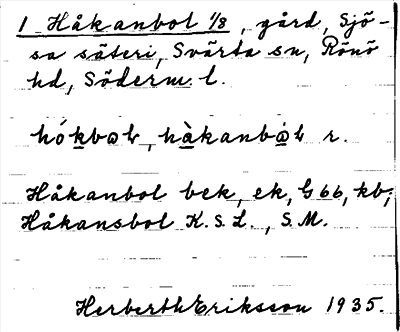 1 Håkanbol 1/8, gård, Sjö-
sa säteri, Svärta sn, Rönö
hd, Söderm. l.
r.
Håkanbol bek, ek, G 66, kb;
Håkansbol K.S.L., S.M.
Herberth Eriksson 1935.